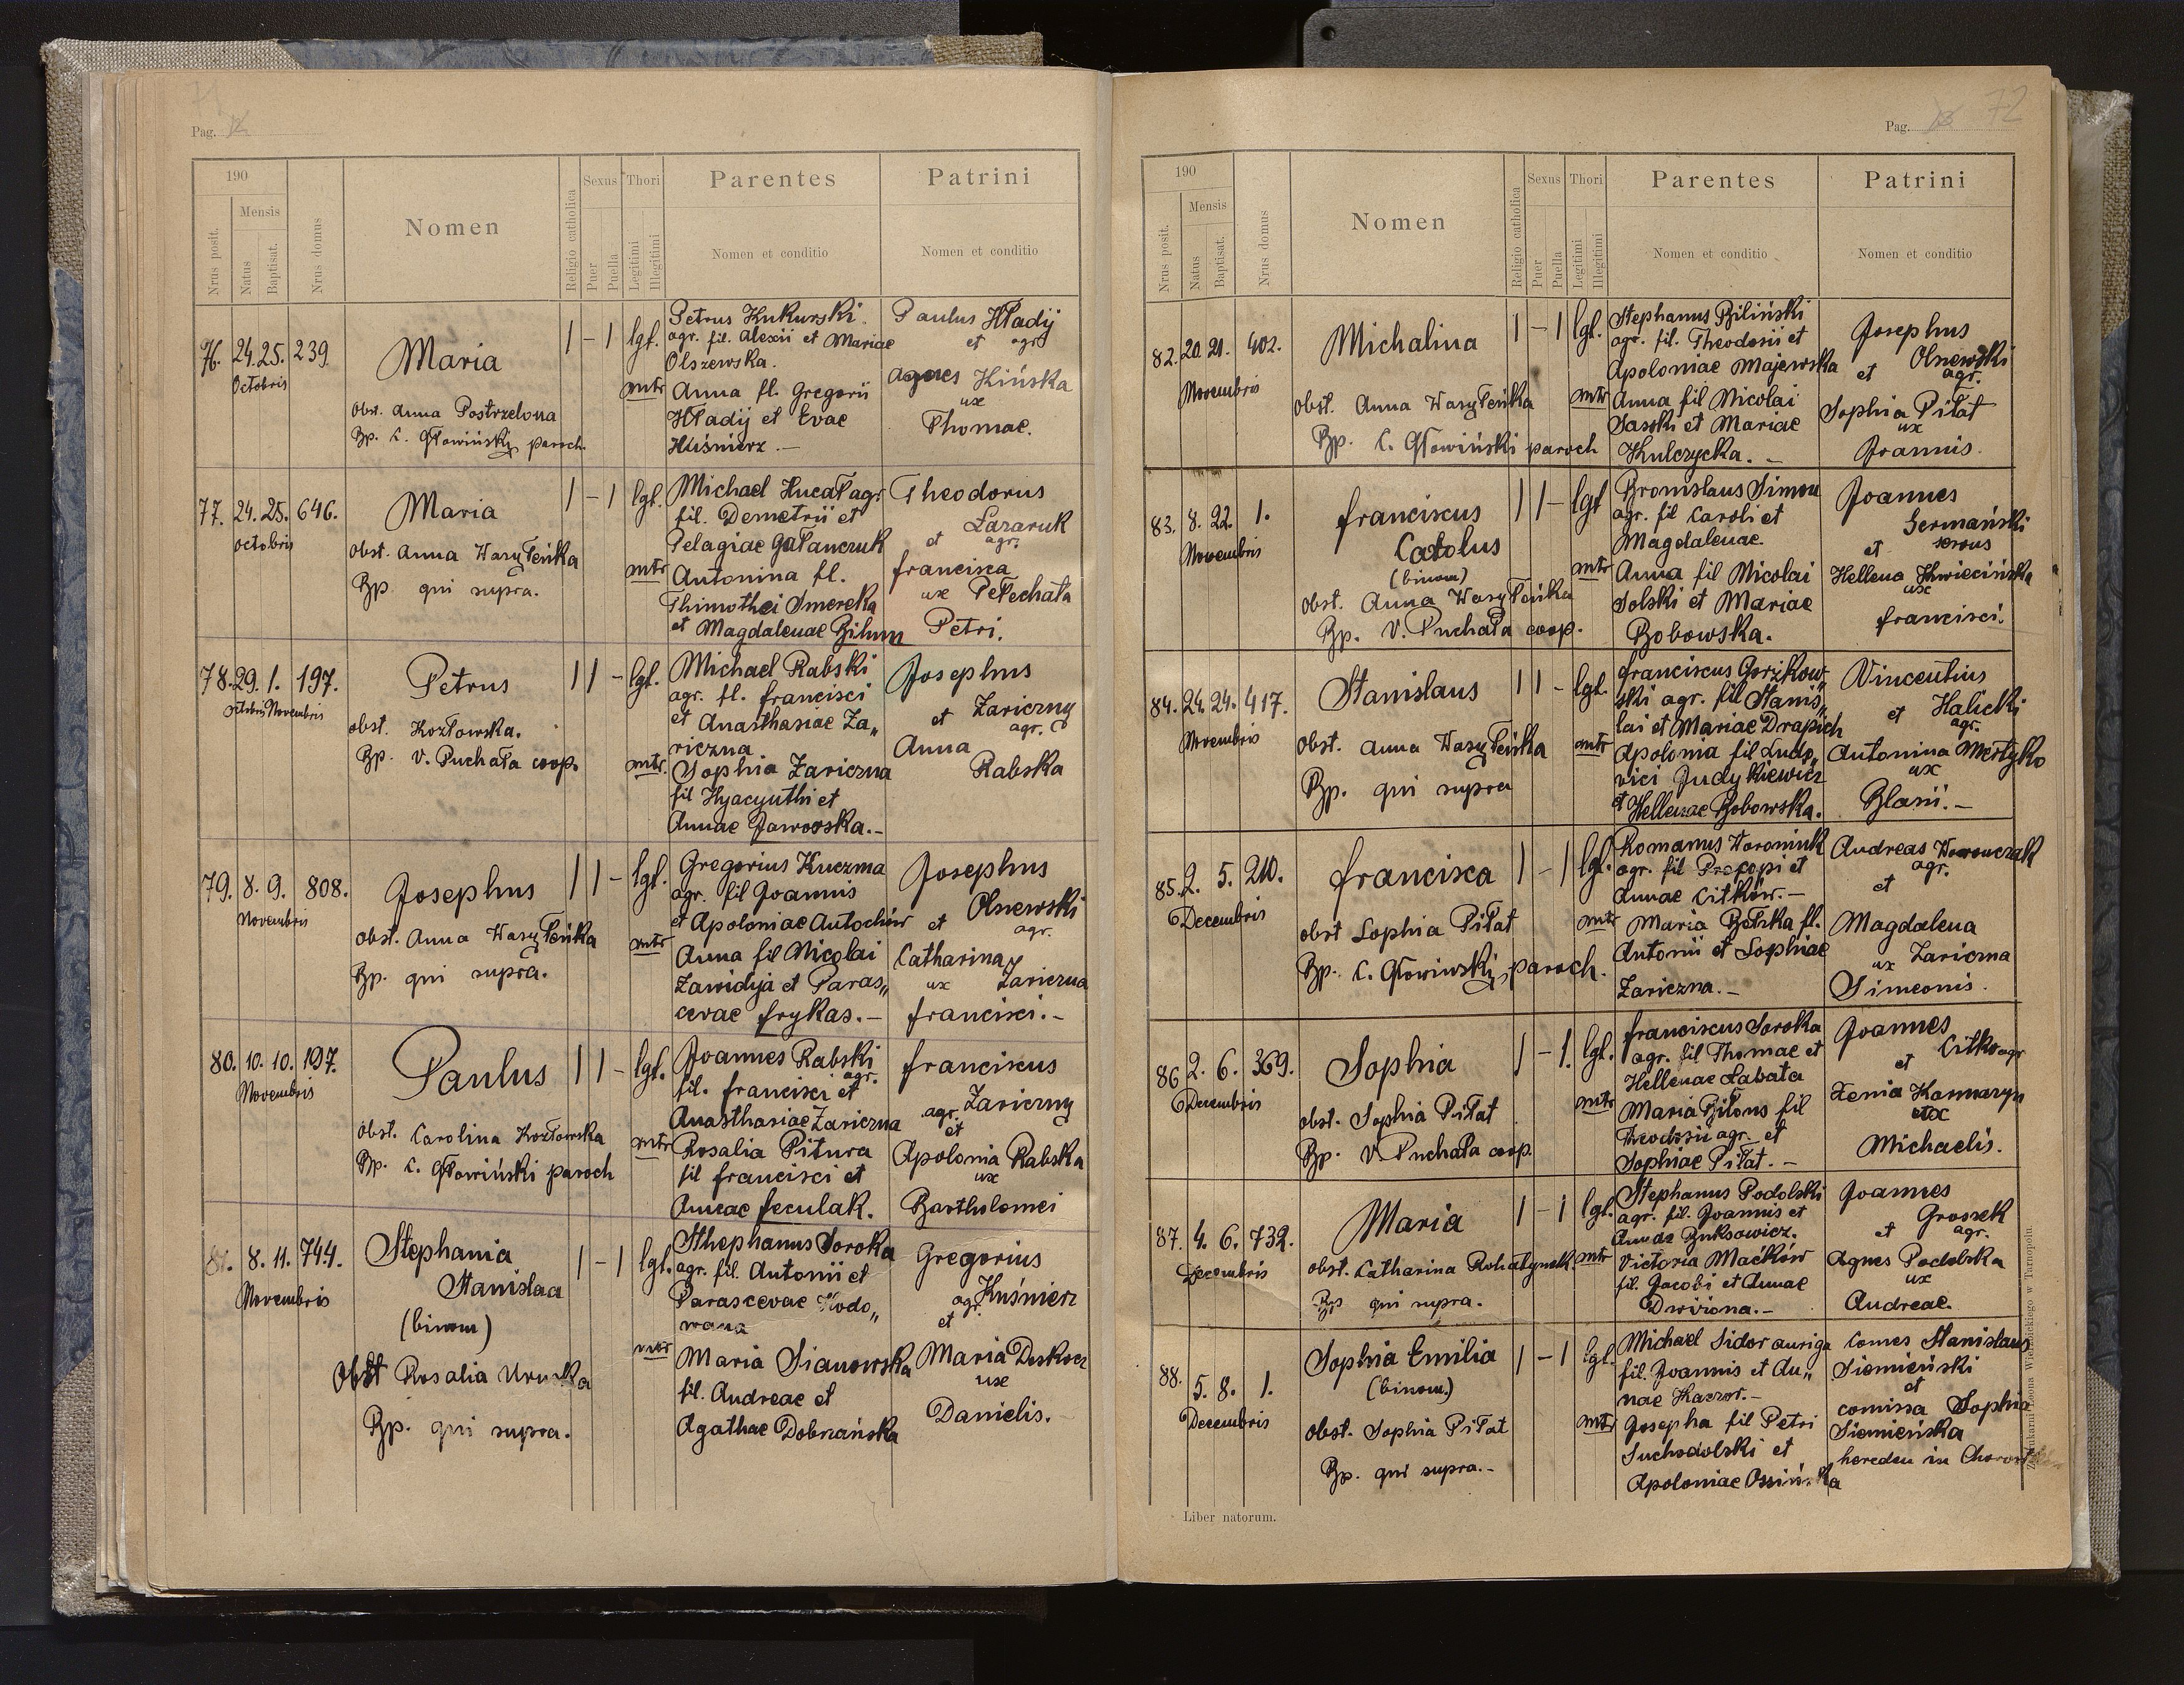 Pag.
190
Nrus posit.
Mensis
Natus
Baptisat.
Nrus domus
Nomen
Religio catholica
Sexus
Puer
Puella
Thori
Legitimi
Illegitimi
Parentes
Nomen et conditio
Patrini
Nomen et conditio
76. 24. 25. 239
Octobris
Maria
obst. Anna Postrzelona
Bp. C. Głowiński paroch.
1 - 1 lgt.
Petrus Kukurski
agr. fil. Alexii et Mariae
Olszewska.
mtr Anna fl. Gregorii
Hładij et Evae
Kuśnierz.-
Paulus Hładij
et agr.
Agnes Kińska
ux
Thomae.
77. 24. 25. 646.
octobris
Maria
obst. Anna Wasyłeńka
Bp. qui supra.
1 - 1 lgt.
Michael Hucał agr
fil. Demetrii et
Pelagiae Gałanczuk
mtr Antonina fl.
Thimothei Smereka
et Magdalenae Bihun
Theodorus
Lazaruk
et agr.
francisca
ux Pełechata
Petri.
78. 29. 1. 197.
octobris Novembris
Petrus
obst. Kozłowska.
Bp. V. Puchała coop.
1 1 - lgt.
Michael Rabski
agr. fl. francisci
et Anasthasiae Za„
riczna
mtr. Sophia Zariczna
fil Hyacynthi et
Annae Jaworska.-
Josephus
Zariczny
et agr.
Anna
Rabska
79. 8. 9. 808.
Novembris
Josephus
obst. Anna Wasyłeńka
Bp. qui supra.
1 1 - lgt.
Gregorius Kuczma
agr. fil Joannis
et Apoloniae Antochów
mtr Anna fil Nicolai
Zawidija et Paras„
cevae frykas.-
Josephus
Olnewski
et agr.
Catharina
ux Zariczna
francisci.-
80. 10. 10. 197.
Novembris
Paulus
obst. Carolina Kozłowska
Bp. C. Głowiński paroch
1 1 - lgt.
Joannes Rabski
agr.
fil. francisci et
Anasthasiae Zariczna
mtr Rosalia Pitura
fil francisci et
Annae feculak.
franciscus
Zariczny
agr.
et
Apolonia Rabska
ux
Bartholomei
81. 8. 11. 744.
Novembris
Stephania
Stanislaa
(binom)
Obst Rosalia
Bp. qui supra.
1 - 1 lgt.
Sthephanus Soroka
agr. fil. Antonii et
Parascevae Hodo„
wana
mtr
Maria Sianowska
fil. Andreae et
Agathae Dobrzańska
Gregorius
Kuśnierz
agr.
et
Maria Doskocz
ux
Danielis.-
Pag. 72
190
Nrus posit.
Mensis
Natus
Baptisat.
Nrus domus
Nomen
Religio catholica
Sexus
Puer
Puella
Thori
Legitimi
Illegitimi
Parentes
Nomen et conditio
Patrini
Nomen et conditio
82. 20. 21. 402.
Novembris
Michalina
obst. Anna Wasyłeńka
Bp. C. Głowiński paroch
1 - 1 lgt.
Stephanus Biliński
agr. fil. Theodosii et
Apoloniae Majewska
mtr Anna fil Nicolai
Sasski et Mariae
Kulczycka.-
Josephus
Olnewski
et agr.
Sophia Piłat
ux
Joannis.
83. 8. 22. 1.
Novembris
franciscus
Carolus
(binom)
obst. Anna Wasyłeńka
Bp. V. Puchała coop.
1 1 - lgt
Bronislaus Simon
agr. fil Caroli et
Magdalenae.
mtr Anna fil Nicolai
Solski et Mariae
Bobowska.
Joannes
Germański
et servus
Hellena Kwiecińska
ux
francisci.
84. 24. 24. 417.
Novembris
Stanislaus
obst. Anna Wasyłeńka
Bp. qui supra
1 1 - lgt.
franciscus Gorzkow„
ski agr. fil Stanis„
lai et Mariae Drapich
mtr Apolonia fil Ludo„
vici Judykiewicz
et Hellenae Bobowska.
Vincentius
et Halicki
agr.
Antonina Mertyko
ux
Blasii.-
85. 2. 5. 210.
Decembris
francisca
obst Sophia Piłat
Bp. C. Głowiński, paroch.
1 - 1 lgt.
Romanus Woroniuk
agr. fil Procopi et
Annae Citków.-
mtr Maria Bełska fl.
Antonii et Sophiae
Zariczna.-
Andreas Woronczak
agr.
et
Magdalena
ux Zariczna
Simeonis.
86 2. 6. 369.
Decembris
Sophia
obst. Sophia Piłat
Bp. V. Puchała coop.
1 - 1. lgt.
franciscus Soroka
agr. fil Thomae et
Hellenae Łabata
mtr Maria Bilous fil
Theodosii agr. et
Sophiae Piłat.-
Joannes
et Citko agr
Xenia Kannaryn
ux
Michaelis.
87. 4. 6. 732.
Decembris
Maria
obst. Catharina Rohatynek
Bp qui supra.
1 - 1 lgt.
Stephanus Podolski
agr. fil. Joannis et
Annae Buksowicz.
mtr Victoria Maćków
fil. Jacobi et Annae
Drwiona.-
Joannes
Grossek
et agr.
Agnes Podolska
ux
Andreae.
88. 5. 8. 1.
Decembris
Sophia Emilia
(binom)
obst. Sophia Piłat
Bp. qui supra.-
1 - 1 lgt.
Michael Sidor auriga
fil. Joannis et An„
nae Kaczor.-
mtr Josepha fil Petri
Suchodolski et
Apoloniae Ossińska
Comes Stanislaus
Siemieński
et
comissa Sophia
Siemieńska
heredes in
Liber natorum.